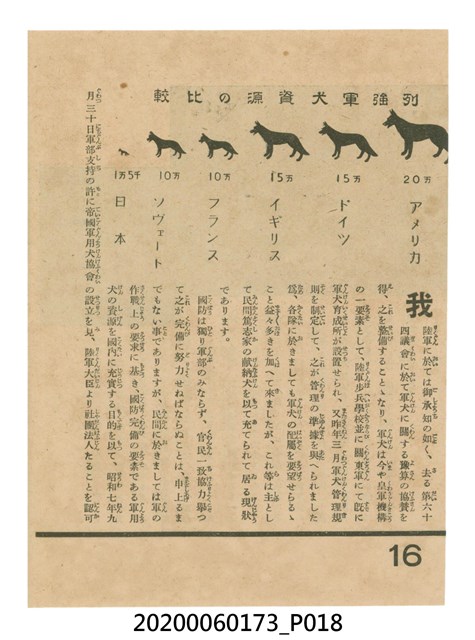 列強軍犬資源の比較
アメリカ
20万
ドイツ
15万
イギリス
15万
フランス
10万
ソヴェート
10万
日本
1万5千
我陸軍に於ては御承知の如く、去る第六十
四議會に於て軍犬に關する豫算の協賛を
得、之を整備することゝなり、軍犬は今や皇軍機構
の一要素として、陸軍步兵學校並に關東軍にて既に
軍犬育成所が設置せられ、又昨年三月軍犬管理規
則を制定して、之が管理の準據を與へられました
爲、各隊に於きましても軍犬の配屬を要望せらるゝ
こと益々多きを加へて來ましたが、これ等は主とし
て民間篤志家の献納犬を以て充てられて居る現狀
であります。
國防は獨り軍部のみならず、官民一致協力擧つ
て之が完備に努力せねばならぬことは、申上るま
でもない事でありますが、民間に於きましては軍の
作戰上の要求に基き、國防完備の要素である軍用
犬の資源を國内に充實する目的を以て、昭和七年九
月三十日軍部支持の許に帝國軍用犬協會の設立を見、陸軍大臣より社團法人たることを認可
16
20200060173_P018